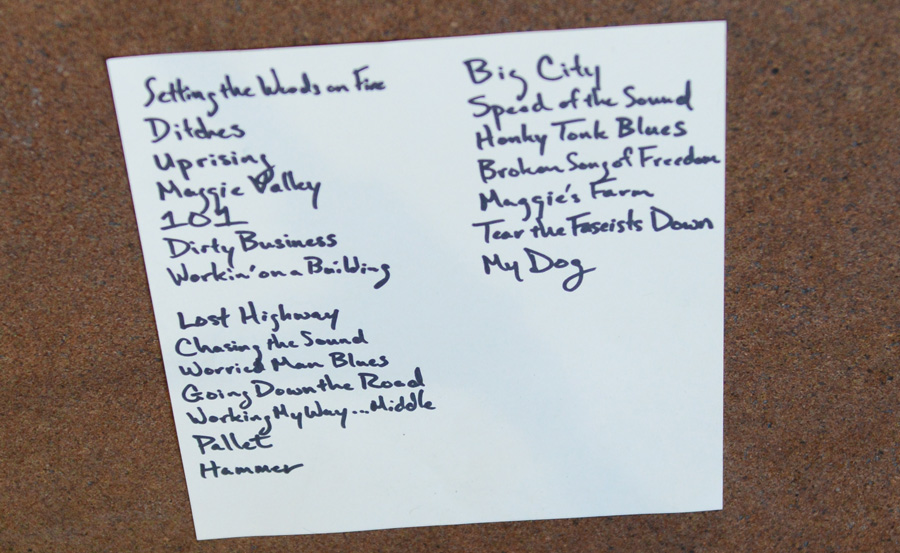 Setting the Woods on Fire
Ditches
Uprising
Maggie Valley
101
Dirty Business
Workin' on a Building
Lost Highway
Chasing the Sound
Worried Man Blues
Going Down the Road
Working My Way...Middle
Pallet
Hammer
Big City
Speed of the Sound
Honky Tonk Blues
Broken Song of Freedom
Maggie's Farm
Tear the Fascists Down
My Dog